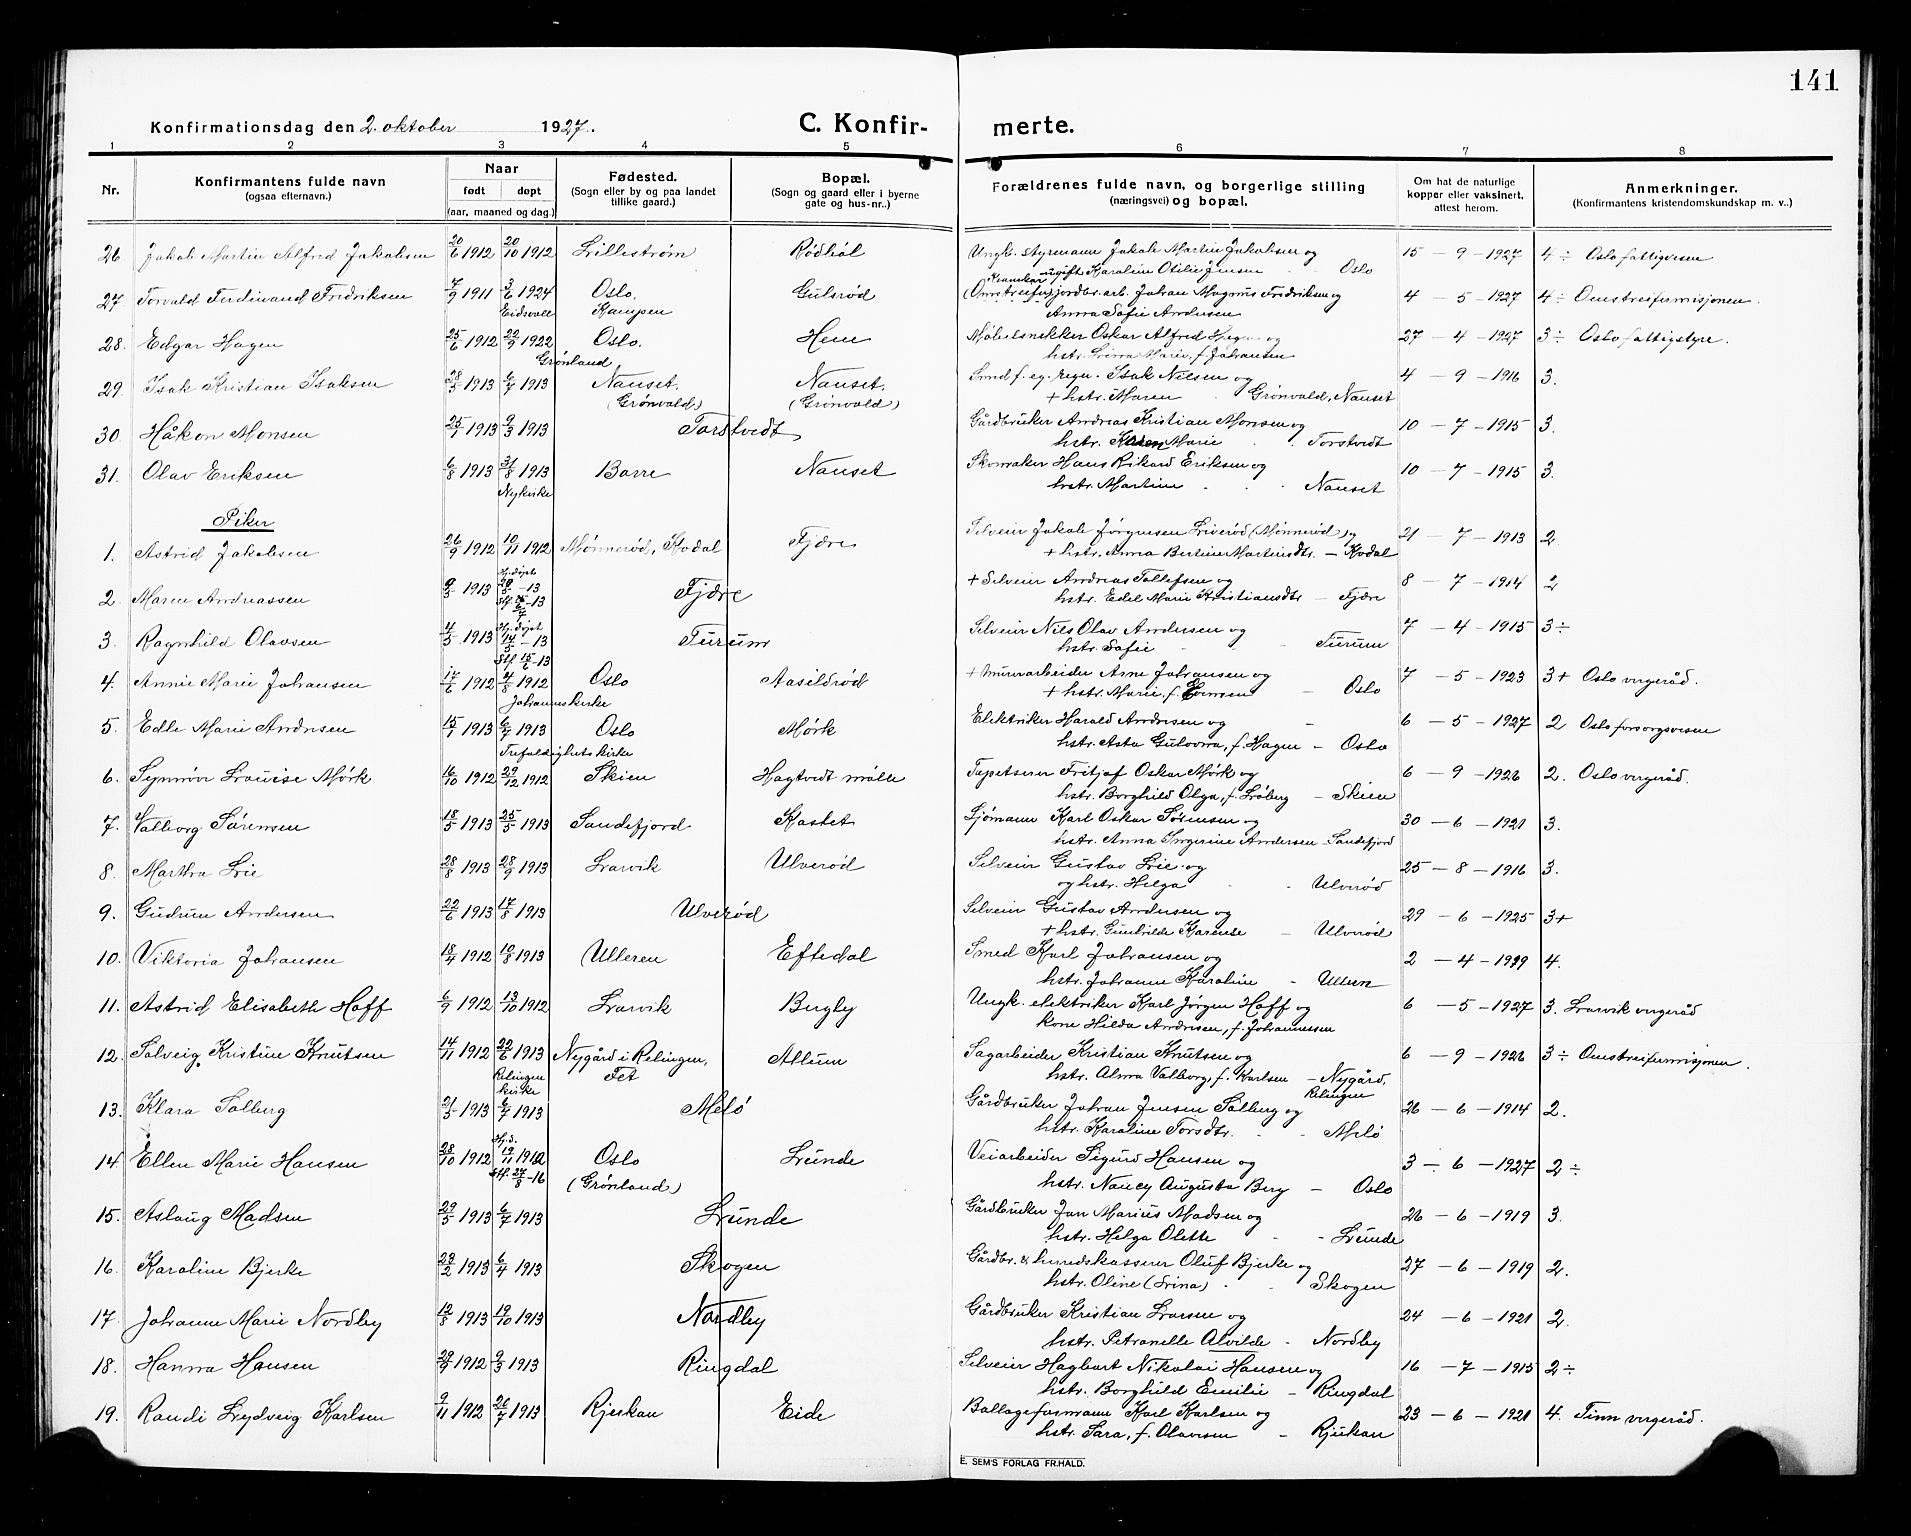 141
Konfirmationsdag den 2. oktober 1927. C. Konfir- merte.
1 2 3 4 5 6 7 8
Nr. Konfirmantens fulde navn (ogsaa efternavn.) Naar født døpt (aar, maaned og dag.) Fødested. (Sogn eller by og paa landet tillike gaard.) Bopæl. (Sogn og gaard eller i byerne gate og hus-nr..) Forældrenes fulde navn, og borgerlige stilling (næringsvei) og bopæl. Om hat de naturlige kopper eller vaksinert, attest herom. Anmerkninger. (Konfirmantens kristendomskundskap m. v..)
26 Jakob Martin Alfred Jakobsen 20/6 1912 20/10 1912 Lillestrøm Rødbøl Ungk. styrmann Jakob Martin Jakobsen og 15 - 9 - 1927 4 ÷ Oslo fattigvesen
ugift Karoline Otilie Jensen Oslo
27 Torvald Ferdinand Fredriksen 7/9 1911 3/6 1924 Oslo, Gulsrød (Omstreifer) jordbr. arb. Johan Magnus Fredriksen og 4 - 5 - 1927 4 ÷ Omstreifermisjonen.
Eidsvoll Kampen Anna Sofie Andersen
28. Edgar Hagen 25/6 1912 22/9 1922 Oslo. Hem Møbelsnekker Oskar Alfred Hagen og 27 - 4 - 1927 3 ÷ Oslo fattigstyre.
Grønland hstr. Linna Marie, f. Johansen
29. Isak Kristian Isaksen 28/5 1913 6/7 1913 Nanset. Nanset. Smed f. eg. regn. Isak Nilsen og 4 - 9 - 1916 3.
(Grønvald) (Grønvald) + hstr. Maren Grønvald, Nanset
30. Håkon Monsen 25/1 1913 9/3 1913 Torstvedt Gårdbruker Andreas Kristian Monsen og 10 - 7 - 1915 3.
hstr. Karen Marie Torstvedt
31. Olav Eriksen 6/8 1913 31/8 1913 Borre Nanset Skomaker Hans Rikard Eriksen og 10 - 7 - 1915 3.
Nykirke hstr. Martine Nanset
Piker
1. Astrid Jakobsen 26/9 1912 10/11 1912 Mønnerød, Kodal Fjære Selveier Jakob Jørgensen Liverød (Mønnerød) og 21 - 7 - 1913 2.
+ hstr. Anna Bertine Martinsdtr. - Kodal
2. Maren Andreassen 1913 Hj.døpt Fjære + Selveier Andreas Tollefsen og 8 - 7 - 1914 2
hstr. Edel Marie Kristiansdtr - Fjære
3. Ragnhild Olavsen 4/5 1913 Hj.døpt 14/5 - 13 Furum Selveier Nils Olav Andersen og 7 - 4 - 1915 3 ÷
Stf. 15/6 - 13 hstr. Sofie Furum
4. Annie Marie Johansen 17/6 1912 4/8 1912 Oslo Aasildrød + Murerarbeider Arne Johansen og 7 - 5 - 1923 3+ Oslo vergeråd.
Johanneskirke + hstr. Marie, f. - Oslo
5. Edle Marie Andresen 15/1 1913 6/7 1913 Oslo Mørk Elektriker Harald Andresen og 6 - 5 - 1927 2 Oslo forsorgsvesen
Trefoldighetskirke hstr. Asta Gulovna, f. Hagen - Oslo
6. Synnøve Louise Mørk 16/10 1912 29/12 1912 Skien Hagtvedt mølle Tapetserer Fritjof Oskar Mørk og 6 - 9 - 1926 2. Oslo vergeråd.
hstr. Borghild Olga, f. Løberg - Skien
7. Valborg Sørensen 18/5 1913 25/5 1913 Sandefjord Kastet Sjømann Karl Oskar Sørensen og 30 - 6 - 1921 3.
hstr. Anna Ingerine Andersen - Sandefjord
8. Martha Lie 28/8 1913 28/9 1913 Larvik Ulverød Selveier Gustav Lie og 25 - 8 - 1916 3.
og hstr. Helga - Ulverød
9. Gudrun Andersen 22/6 1913 17/8 1913 Ulverød Selveier Gustav Andersen og 29 - 6 - 1925 3+
+ hstr. Gunhilde Karense - Ulverød
10. Viktoria Johansen 18/4 1912 10/8 1913 Ulleren Eftedal Smed Karl Johansen og 2 - 4 - 1929 4.
hstr. Johanne Karoline - Ulleren
11. Astrid Elisabeth Hoff 6/9 1912 13/10 1912 Larvik Bergby Ungk. elektriker Karl Jørgen Hoff og 6 - 5 - 1927 3. Larvik vergeråd
kone Hilda Andresen, f. Johannessen
12. Solveig Kristine Knutsen 14/11 1912 22/6 1913 Nygård i Relingen, Allum Sagarbeider Kristian Knutsen og 6 - 9 - 1926 3 ÷ Omstreifermisjonen.
Relingen kirke Fet hstr. Alma Valborg, f. Karlsen - Nygård, Relingen
13. Klara Solberg 21/5 1913 6/7 1913 Melø Gårdbruker Johan Jensen Solberg og 26 - 6 - 1914 2.
hstr. Karoline Torsdtr. - Melø
14. Ellen Marie Hansen 28/10 1912 Hj.d. 19/11 1912 Oslo Lunde Veiarbeider Sigurd Hansen og 3 - 6 - 1927 2 ÷
Stf. 27/8 - 16 (Grønland) hstr. Nancy Augusta Berg - Oslo
15. Aslaug Madsen 29/5 1913 6/7 1913 Lunde Gårdbruker Jan Marius Madsen og 26 - 6 - 1919 3.
hstr. Helga Olette - Lunde
16. Karoline Bjerke 23/2 1913 6/4 1913 Skogen Gårdbr. & herredskasserer Oluf Bjerke og 27 - 6 - 1919 2.
hstr. Oline (Lina) Skogen
17. Johanne Marie Nordby 12/8 1913 19/10 1913 Nordby Gårdbruker Kristian Larsen og 24 - 6 - 1921 2.
hstr. Petranelle Alvilde - Nordby
18. Hanna Hansen 1912 9/3 1913 Ringdal Selveier Hagbart Nikolai Hansen og 16 - 7 - 1915 2 ÷
hstr. Borghild Emilie - Ringdal
19. Randi Lydveig Karlsen 9/11 1912 26/7 1913 Rjukan Eide Karl Karlsen og 23 - 6 - 1921 4. Tinn vergeråd.
hstr. Sara, f. Olavesen - Rjukan
E. SEM'S FORLAG FR.HALD.